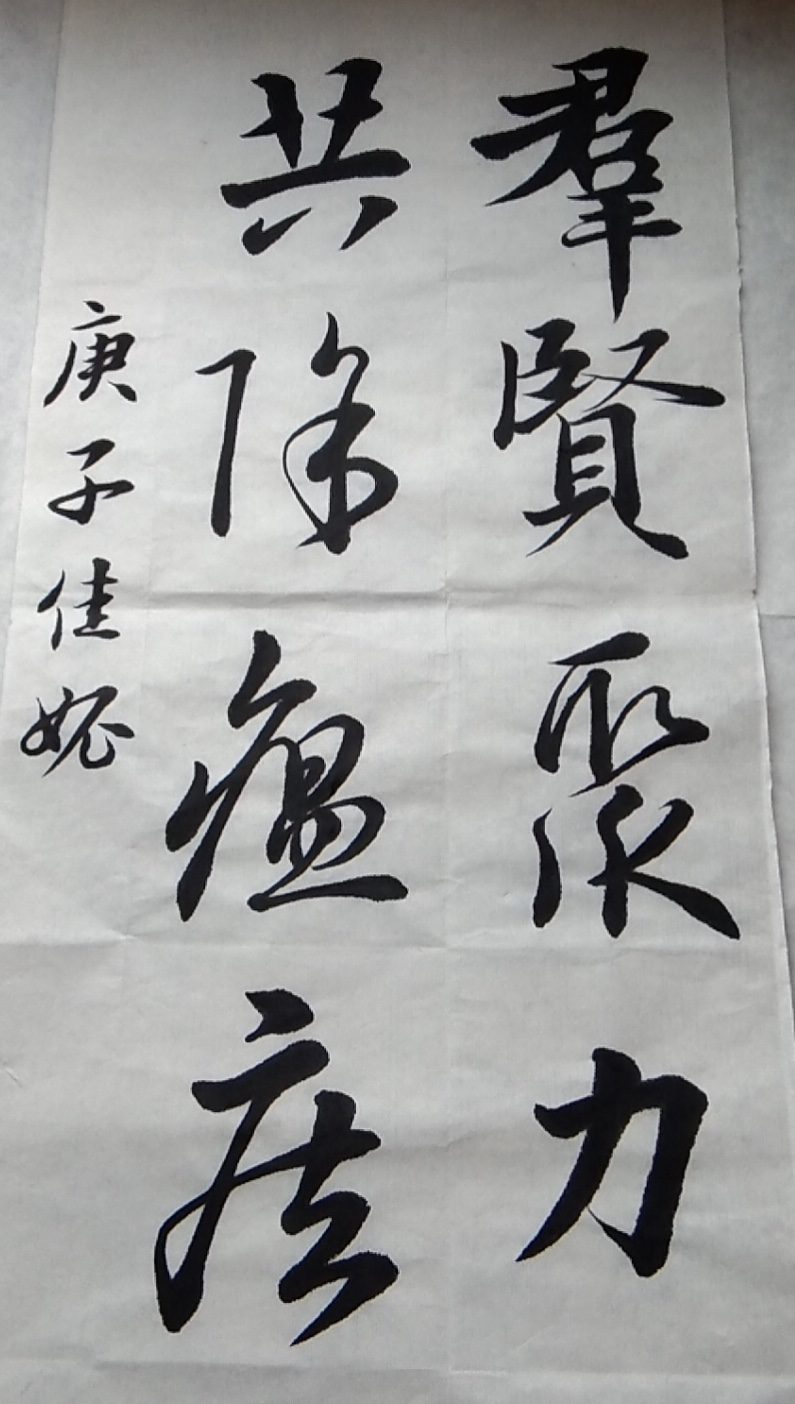 羣賢聚力
共除瘟疫
庚子佳